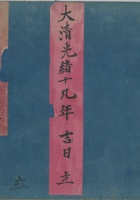 大清光緒十九年 吉日 立